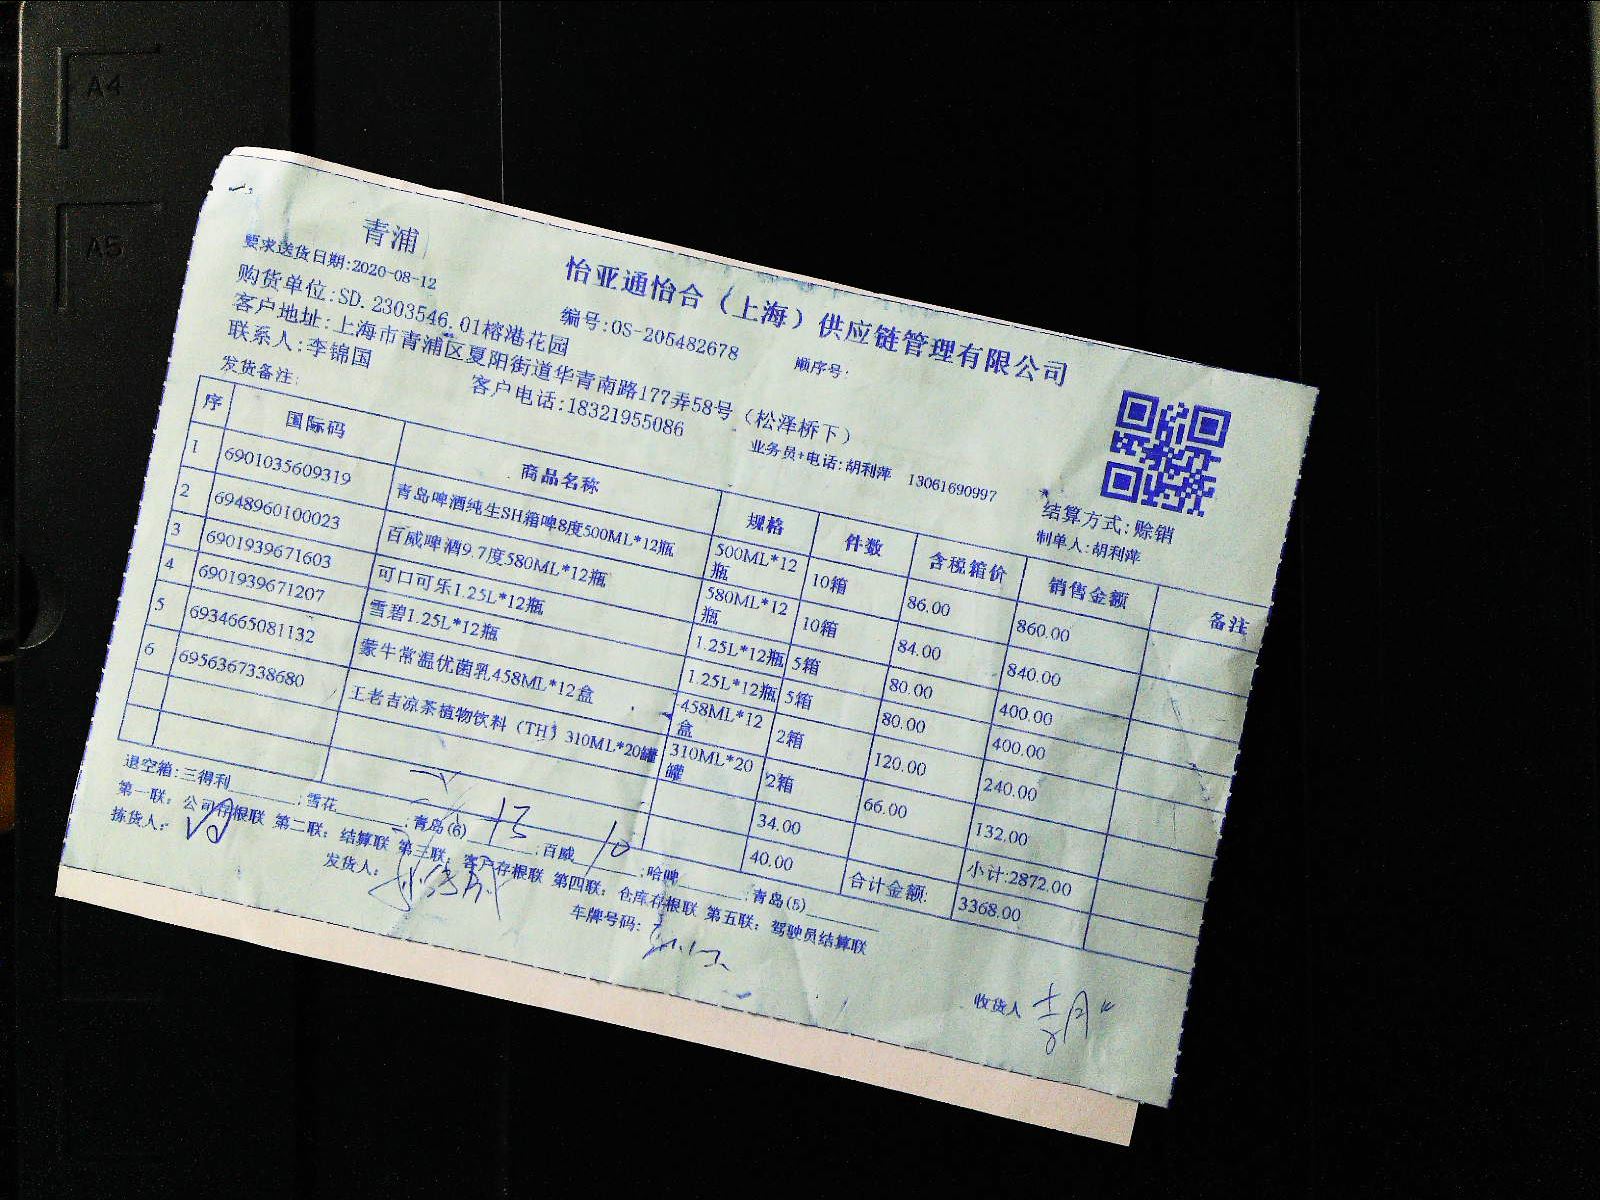 A4
A5
青浦
要求送货日期:2020-08-12
怡亚通怡合（上海）供应链管理有限公司
购货单位:SD.2303546.01榕港花园
编号:OS-205482678
顺序号:
客户地址:上海市青浦区夏阳街道华青南路177弄58号（松泽桥下）
联系人:李锦国
客户电话:18321955086
业务员+电话:胡利萍 13061690997
结算方式:赊销
发货备注:
制单人:胡利萍
序 国际码 商品名称 规格 件数 含税箱价 销售金额 备注
1 6901035609319 青岛啤酒纯生SH箱啤8度500ML*12瓶 500ML*12瓶 10箱 86.00 860.00
2 6948960100023 百威啤酒9.7度580ML*12瓶 580ML*12瓶 10箱 84.00 840.00
3 6901939671603 可口可乐1.25L*12瓶 1.25L*12瓶 5箱 80.00 400.00
4 6901939671207 雪碧1.25L*12瓶 1.25L*12瓶 5箱 80.00 400.00
5 6934665081132 蒙牛常温优菌乳458ML*12盒 458ML*12盒 2箱 120.00 240.00
6 6956367338680 王老吉凉茶植物饮料（TH）310ML*20罐 310ML*20罐 2箱 66.00 132.00
34.00 小计:2872.00
40.00 合计金额: 3368.00
退空箱:三得利______;雪花______;青岛(6) 13 ;百威 10 ;哈啤______;青岛(5)______
第一联：公司存根联 第二联：结算联 第三联：客户存根联 第四联：仓库存根联 第五联：驾驶员结算联
拣货人:
发货人:
车牌号码:
收货人